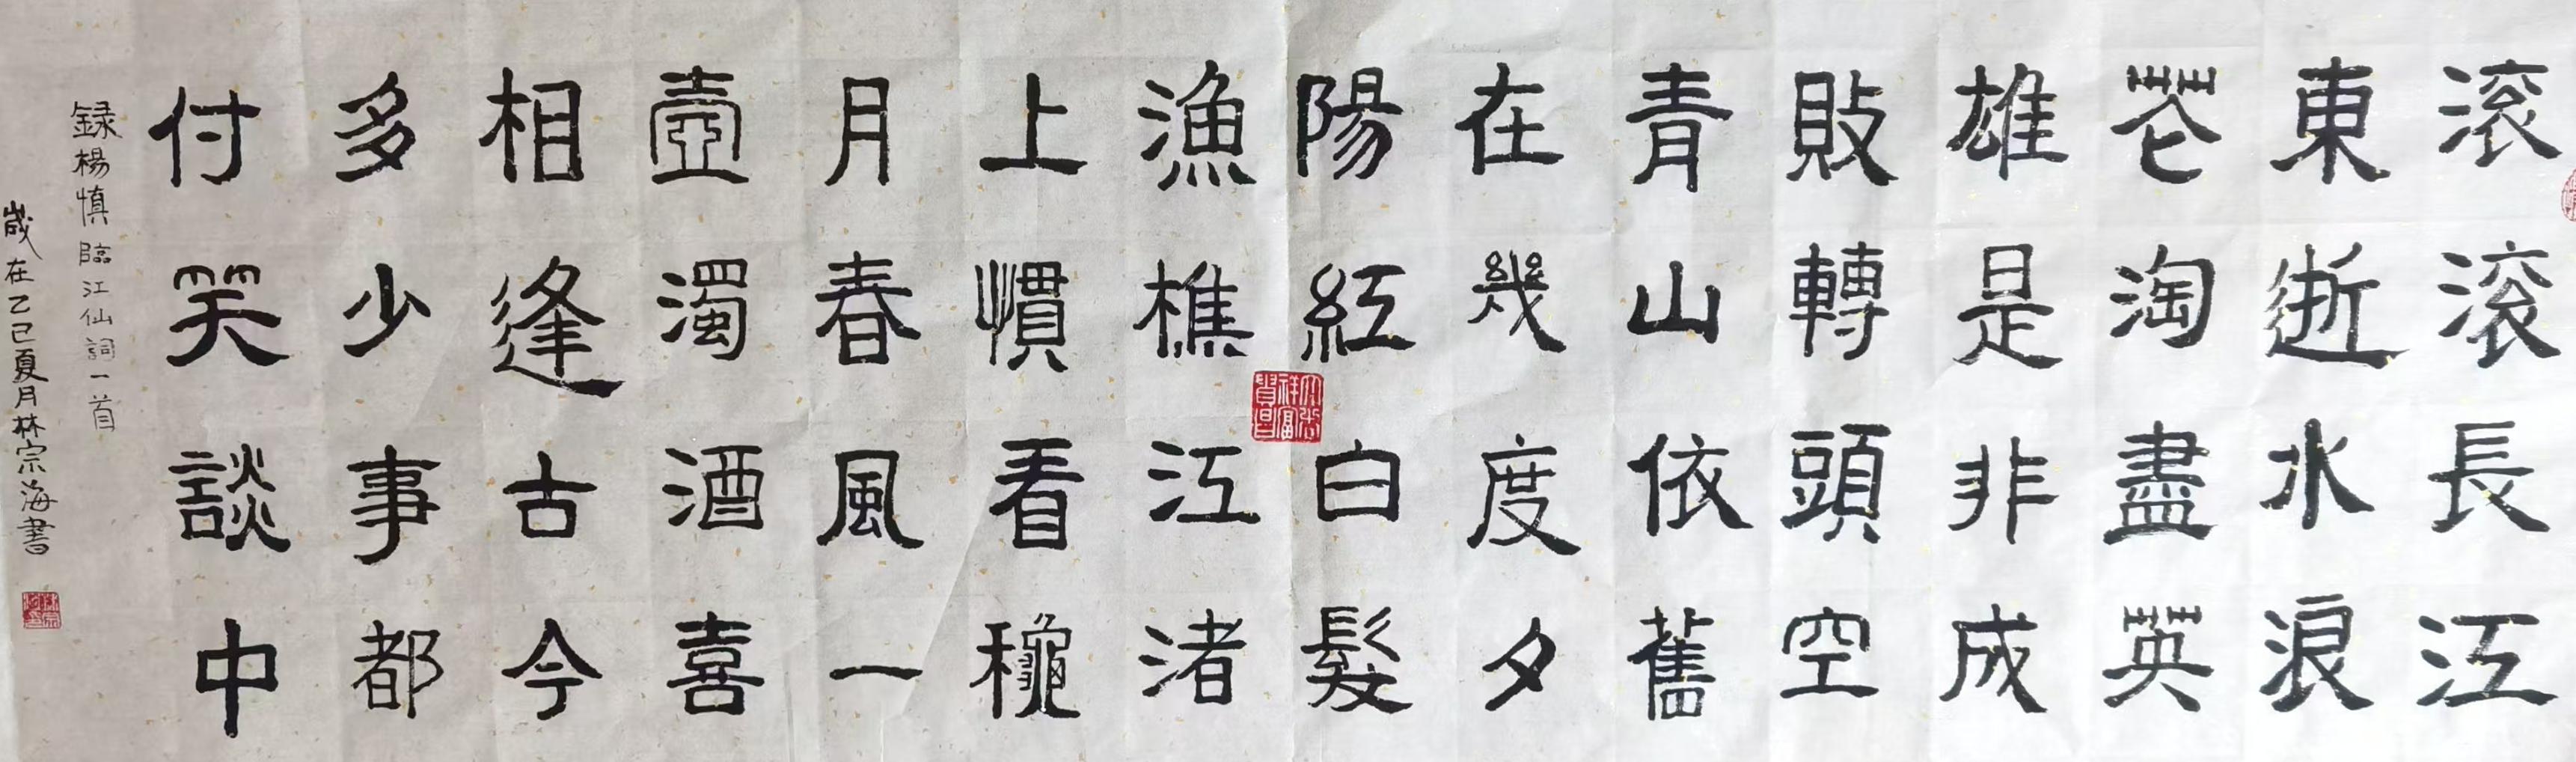 滚滚長江
東逝水浪
花淘盡英
雄是非成
敗轉頭空
青山依舊
在幾度夕
陽紅白髮
漁樵江渚
上慣看穐
月春風一
壺濁酒喜
相逢古今
多少事都
付笑談中
録楊慎臨江仙詞一首
歲在乙巳夏月林宗海書